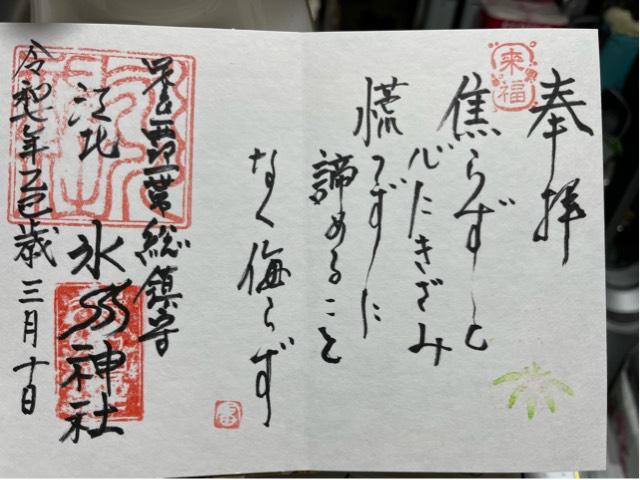 奉拝
来福
焦らずと
心にきざみ
慌てずに
諦めること
なく侮らず
総鎮守
江北 氷川神社
令和七年乙巳歳三月十日